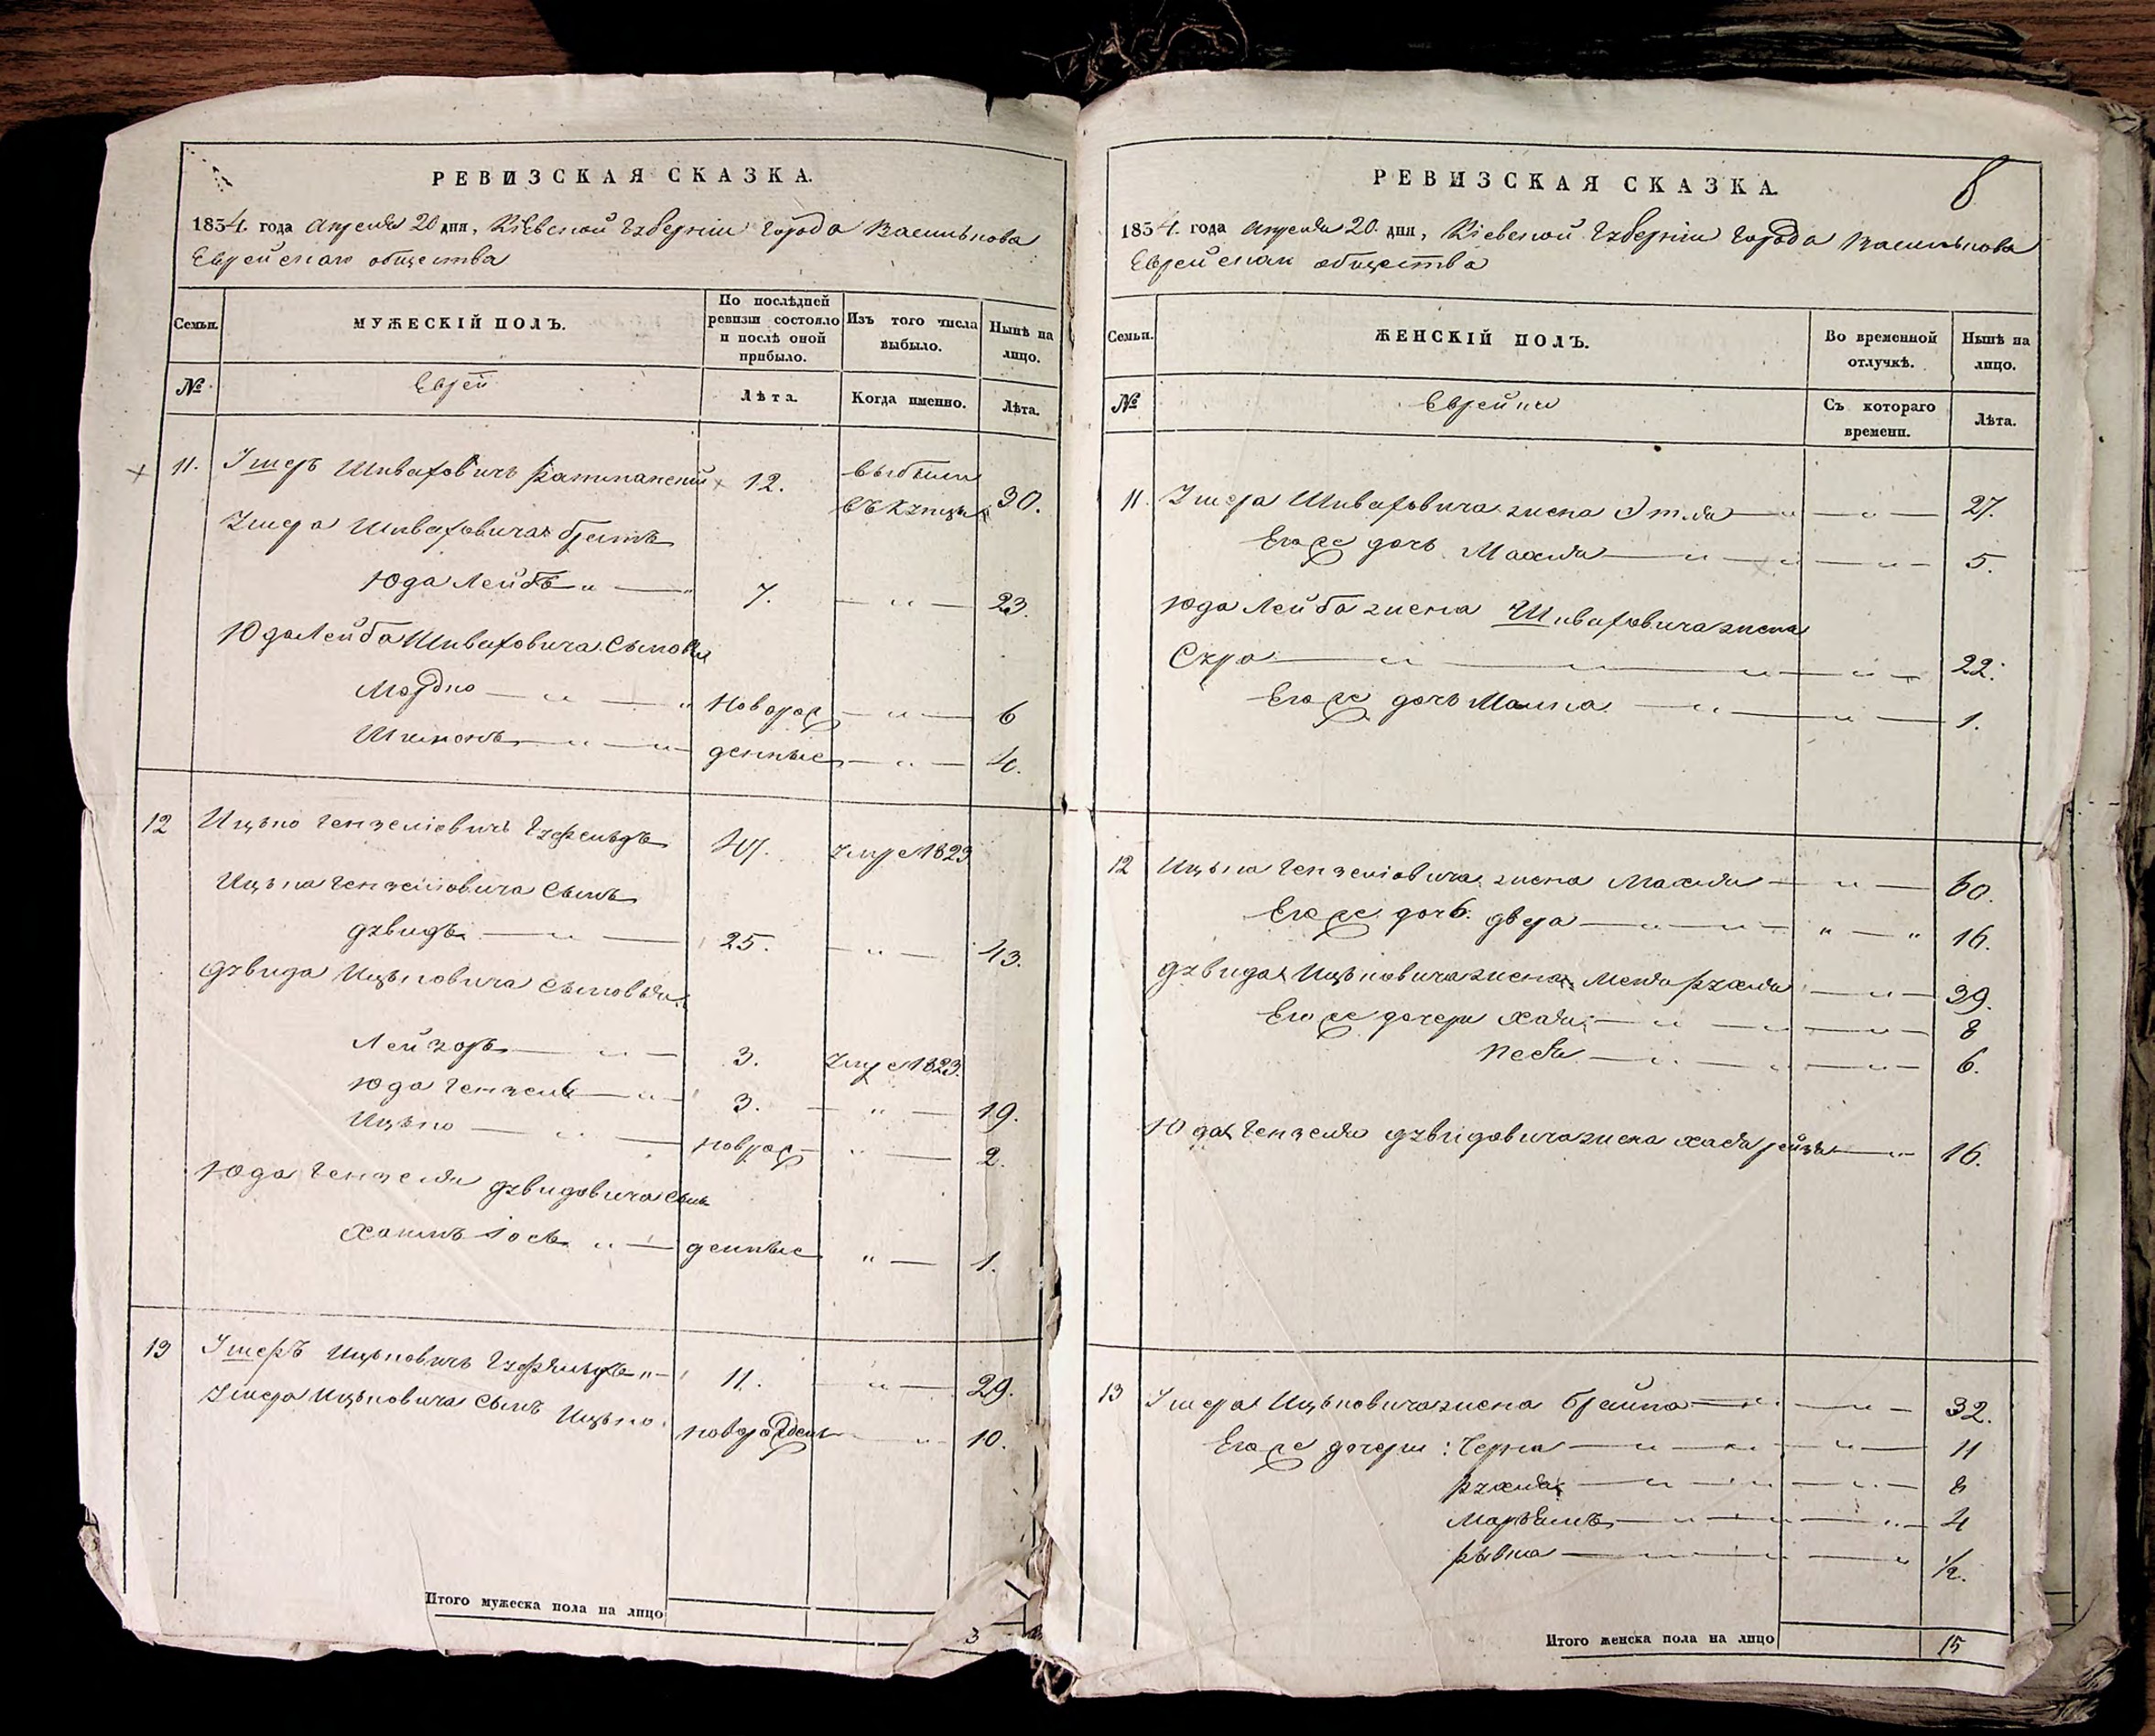 РЕВИЗСКАЯ СКАЗКА.
1854. года Апреля 20 дня, Кіевской Губерніи города Василькова
Еврейскаго общества
Семьи.
МУЖЕСКІЙ ПОЛЪ.
По послѣдней ревизіи состояло и послѣ оной прибыло.
Изъ того числа выбыло.
Нынѣ на лицо.
№
Еврей
Лѣта.
Когда именно.
Лѣта.
11. Усшеръ Шивахович 12. выбыли въ купцы 30.
Умера Шиваховича братъ
Юда Лейбъ " — " 7. — " — 23.
Юда Лейба Шиваховича Сыновья
Мордко — " — " Новорож — " — 6
Шимонъ — " — " денные — " — 4.
12 Ицько Гензеліовичъ Гуфельдъ 47. умре 1823
Ицька Гензеліовича Сынъ
Дувидъ — " — 25. — " — 43.
Дувида Ицьковича Сыновья
Лейзоръ — " — 3. умре 1823.
Юда Гензель — " — 3. — " — 19.
Ицько — " — новрож — " — 2.
Юда Гензеля Дувидовича Сынъ
Хаимъ Іось " — денные " — 1.
13 Ушеръ Ицьковичъ Гуфельдъ " — 11. — " — 29.
Ушера Ицьковича Сынъ Ицько. новорожден — " 10.
Итого мужеска пола на лицо
3
8
РЕВИЗСКАЯ СКАЗКА
1854. года Апреля 20. дня, Кіевской Губерніи города Василькова
Еврейскаго общества
Семьи.
ЖЕНСКІЙ ПОЛЪ.
Во временной отлучкѣ.
Нынѣ на лицо.
№
Еврейки
Съ котораго времени.
Лѣта.
11. Ушера Шиваховича жена Этля — " — " — 27.
Его же дочь Махля — " — " — " — 5.
Юда Лейба жена Шиваховича жена
Сура — " — " — " — " — 22.
Его же дочь Малка — " — " — 1.
12 Ицька Гензеліовича жена Махля — " — 60.
Его же дочь Двера — " — " — " — " 16.
Дувида Ицьковича жена Меня Рухля — " — 39.
Его же дочери Хая — " — " — " — 8
Песя — " — " — " — 6.
Юда Гензеля Дувидовича жена Хая Рейзя — " 16.
13 Ушера Ицьковича жена Брайна — " — " — 32.
Его же дочери: Черна — " — " — " — 11
Рухля — " — " — " — 8
Марьямъ — " — " — " — 4
Рывка — " — " — " 1/2.
Итого женска пола на лицо
15